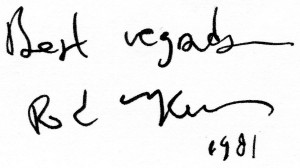 Best regards
Rod
1981